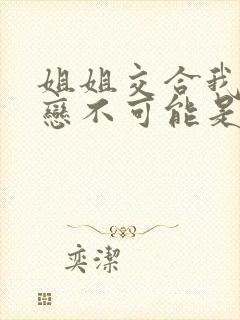 姐姐交合我
戀不可能是
奕潔